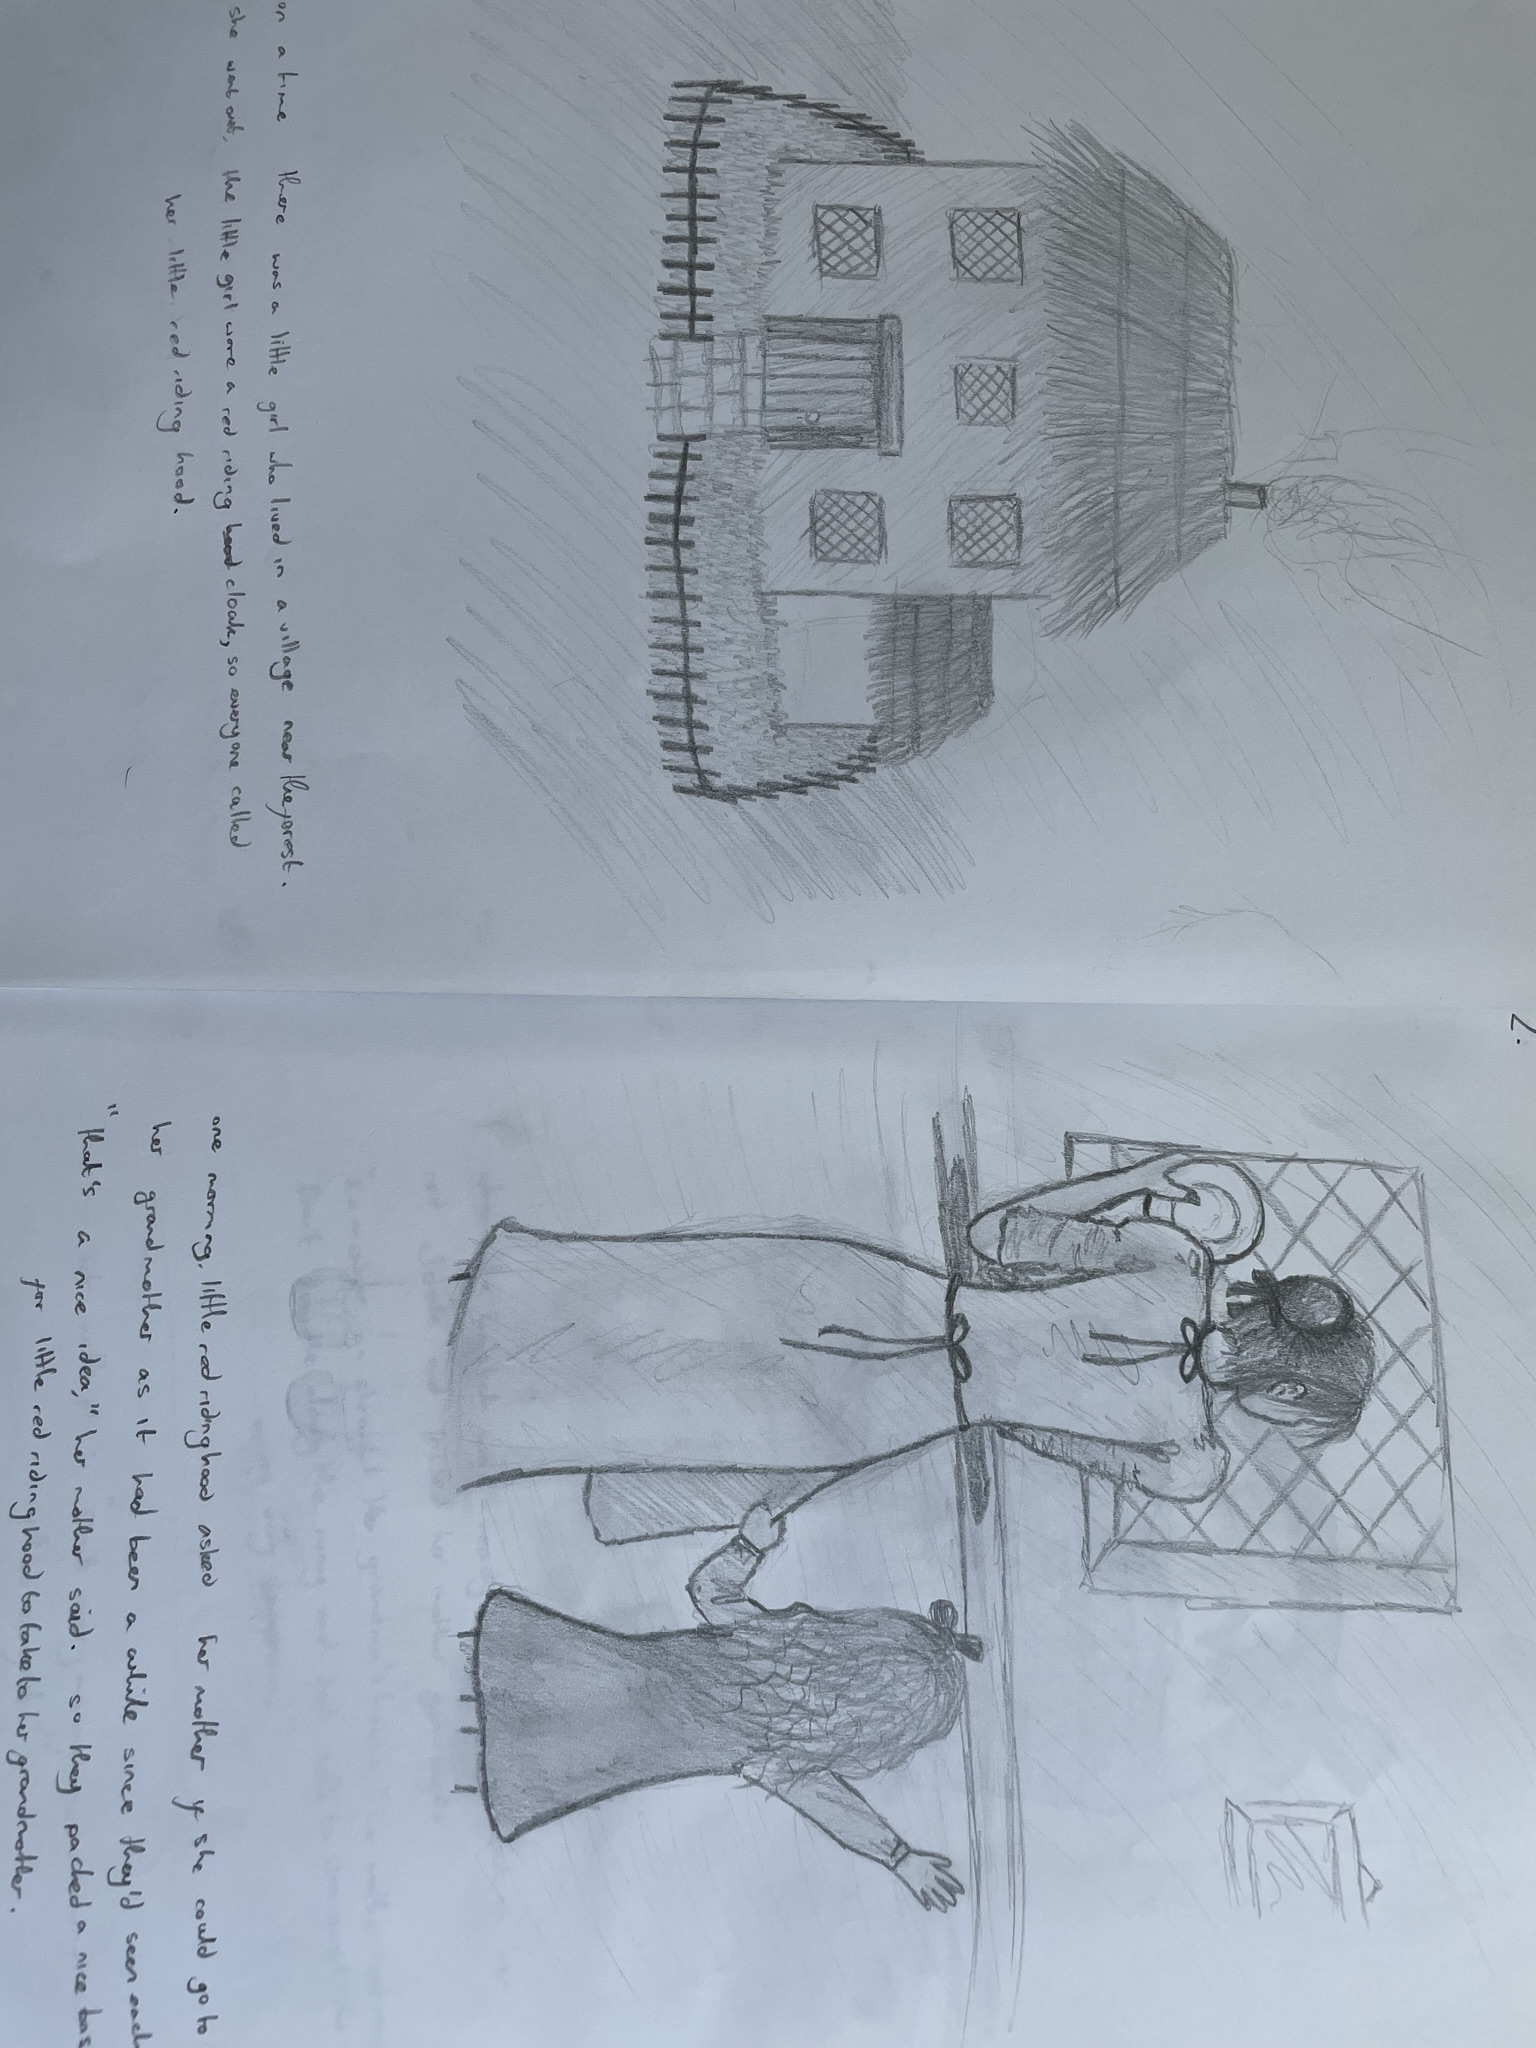 2.
on a time there was a little girl who lived in a village near the forest.
she went out, the little girl wore a red riding hood cloak, so everyone called
her little red riding hood.
one morning, little red riding hood asked her mother if she could go to
her grandmother as it had been a while since they'd seen each
"that's a nice idea," her mother said. so they packed a nice bas
for little red riding hood to take to her grandmother.